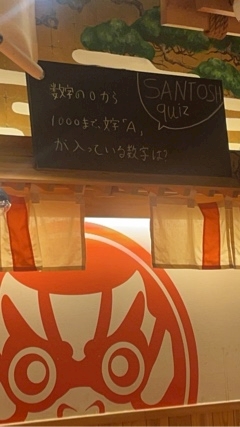 SANTOSH
quiz
数字の0から
1000まで、文字「A」
が入っている数字は?